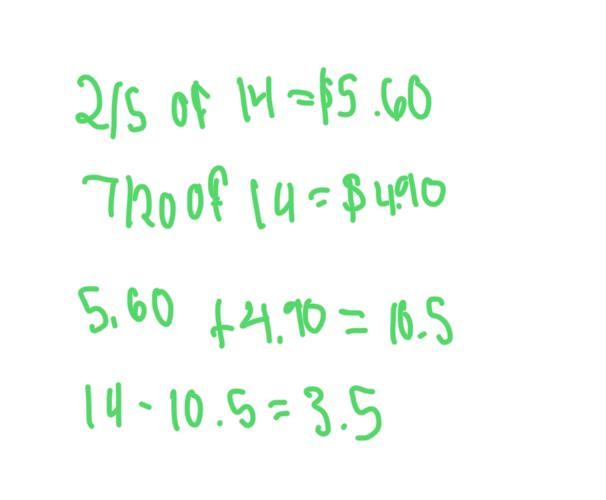 2/5 of 14 = $5.60
7/20 of 14 = $4.90
5.60 + 4.90 = 10.5
14 - 10.5 = 3.5